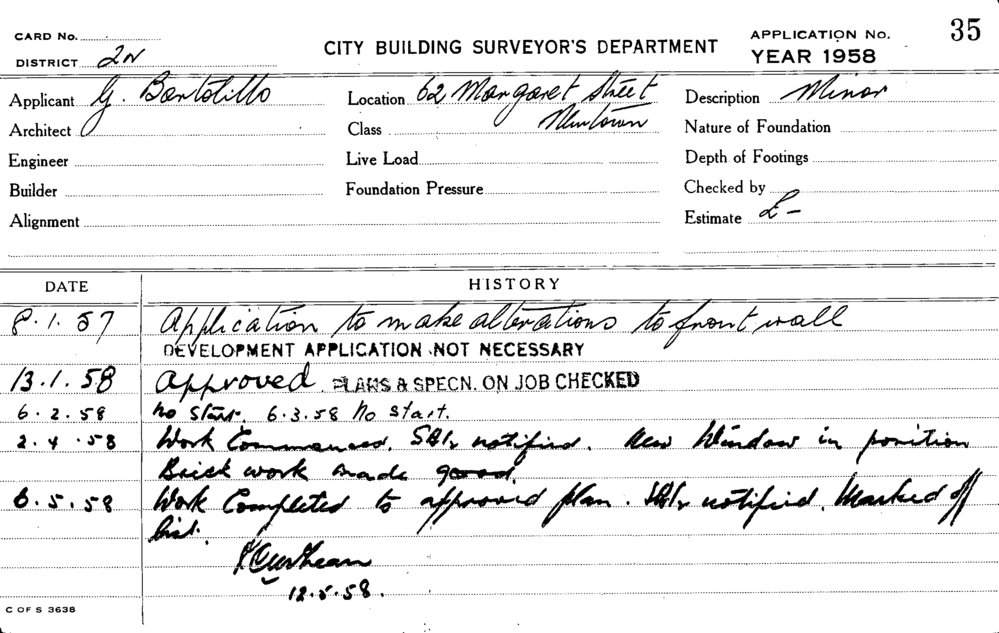 CARD No.
DISTRICT 2N
CITY BUILDING SURVEYOR'S DEPARTMENT
APPLICATION No. 35
YEAR 1958
Applicant G. Bartolillo
Location 62 Margaret Street
Newtown
Description Minor
Architect
Class
Nature of Foundation
Engineer
Live Load
Depth of Footings
Builder
Foundation Pressure
Checked by
Alignment
Estimate £-
DATE
HISTORY
8.1.57 Application to make alterations to front wall
DEVELOPMENT APPLICATION NOT NECESSARY
13.1.58 Approved. PLANS & SPECN. ON JOB CHECKED
6.2.58 No start. 6.3.58 No start.
2.4.58 Work Commenced. notified. New Window in position
Brick work made good.
6.5.58 Work Completed to approved plan. notified. Marked off
list.
12.5.58.
C OF S 3638